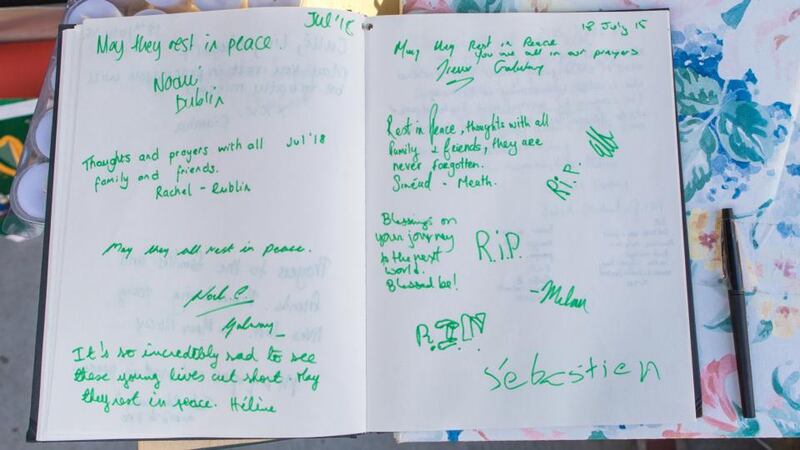 Jul '18
May they rest in peace.
Naomi
Dublin
Thoughts and prayers with all Jul '18
family and friends.
Rachel - Dublin
May they all rest in peace.
Noel C.
Galway
It's so incredibly sad to see
these young lives cut short May
they rest in peace. Hélène
18 July 15
May they Rest in Peace
you are all in our prayers
Galway
Rest in Peace, thoughts with all
family & friends, they are
never forgotten.
Sinéad - Meath.
R.i.P.
Blessings on
your journey
to the next
world.
Blessed be!
R.I.P.
- Melan
Sébastien